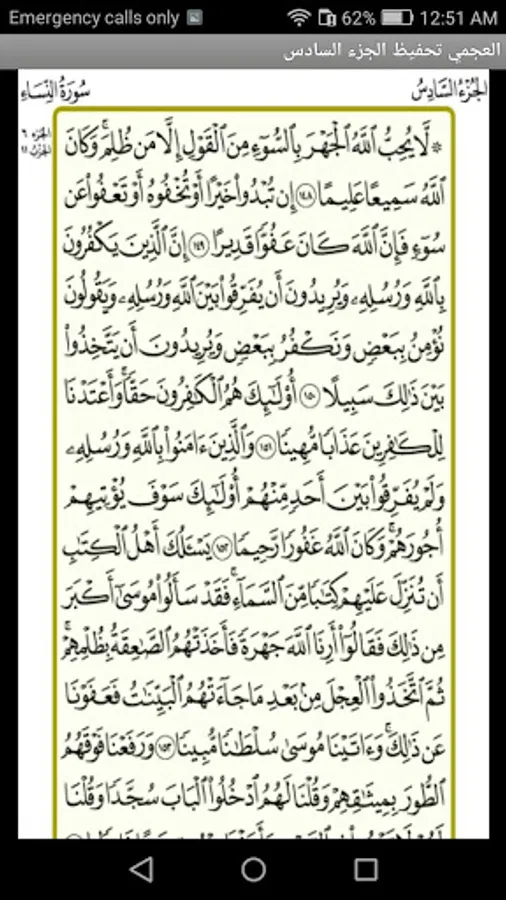 Emergency calls only 62% 12:51 AM
العجمي تحفيظ الجزء السادس
الجُزْءُ السَّادِسُ سُورَةُ النِّسَاءِ
۞ لَّا يُحِبُّ ٱللَّهُ ٱلْجَهْرَ بِٱلسُّوٓءِ مِنَ ٱلْقَوْلِ إِلَّا مَن ظُلِمَۚ وَكَانَ
الجزء ٦
الحزب ١١
ٱللَّهُ سَمِيعًا عَلِيمًا ١٤٨ إِن تُبْدُوا۟ خَيْرًا أَوْ تُخْفُوهُ أَوْ تَعْفُوا۟ عَن
سُوٓءٍ فَإِنَّ ٱللَّهَ كَانَ عَفُوًّا قَدِيرًا ١٤٩ إِنَّ ٱلَّذِينَ يَكْفُرُونَ
بِٱللَّهِ وَرُسُلِهِۦ وَيُرِيدُونَ أَن يُفَرِّقُوا۟ بَيْنَ ٱللَّهِ وَرُسُلِهِۦ وَيَقُولُونَ
نُؤْمِنُ بِبَعْضٍ وَنَكْفُرُ بِبَعْضٍ وَيُرِيدُونَ أَن يَتَّخِذُوا۟
بَيْنَ ذَٰلِكَ سَبِيلًا ١٥٠ أُو۟لَٰٓئِكَ هُمُ ٱلْكَٰفِرُونَ حَقًّاۚ وَأَعْتَدْنَا
لِلْكَٰفِرِينَ عَذَابًا مُّهِينًا ١٥١ وَٱلَّذِينَ ءَامَنُوا۟ بِٱللَّهِ وَرُسُلِهِۦ
وَلَمْ يُفَرِّقُوا۟ بَيْنَ أَحَدٍ مِّنْهُمْ أُو۟لَٰٓئِكَ سَوْفَ يُؤْتِيهِمْ
أُجُورَهُمْۚ وَكَانَ ٱللَّهُ غَفُورًا رَّحِيمًا ١٥٢ يَسْـَٔلُكَ أَهْلُ ٱلْكِتَٰبِ
أَن تُنَزِّلَ عَلَيْهِمْ كِتَٰبًا مِّنَ ٱلسَّمَآءِۚ فَقَدْ سَأَلُوا۟ مُوسَىٰٓ أَكْبَرَ
مِن ذَٰلِكَ فَقَالُوٓا۟ أَرِنَا ٱللَّهَ جَهْرَةً فَأَخَذَتْهُمُ ٱلصَّٰعِقَةُ بِظُلْمِهِمْۚ
ثُمَّ ٱتَّخَذُوا۟ ٱلْعِجْلَ مِنۢ بَعْدِ مَا جَآءَتْهُمُ ٱلْبَيِّنَٰتُ فَعَفَوْنَا
عَن ذَٰلِكَۚ وَءَاتَيْنَا مُوسَىٰ سُلْطَٰنًا مُّبِينًا ١٥٣ وَرَفَعْنَا فَوْقَهُمُ
ٱلطُّورَ بِمِيثَٰقِهِمْ وَقُلْنَا لَهُمُ ٱدْخُلُوا۟ ٱلْبَابَ سُجَّدًا وَقُلْنَا